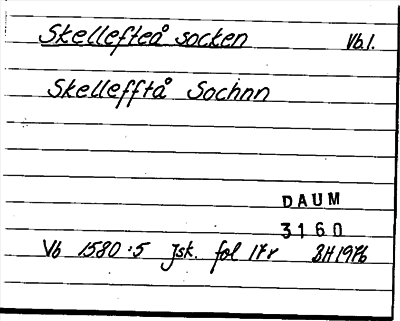 Skellefteå socken Vb.l.
Skellefftå Sochnn
DAUM
3160
Vb 1580:5 Jsk. fol 17r BH1976